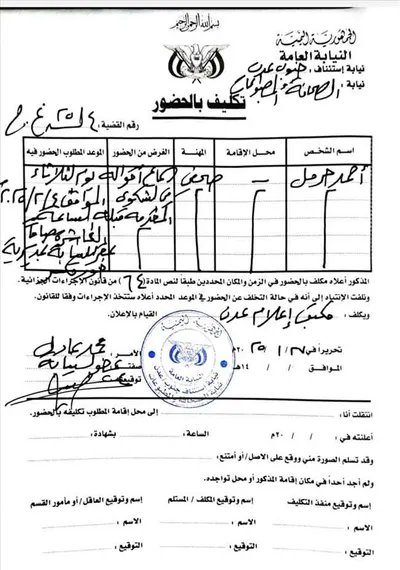 بسم الله الرحمن الرحيم
الجمهورية اليمنية
النيابة العامة
نيابة إستئناف: جنوب عدن
نيابة: الصحافة والمطبوعات
تكليف بالحضور
رقم القضية:
اسم الشخص
محل الإقامة
المهنة
الغرض من الحضور
الموعد المطلوب الحضور فيه
أحمد حرمل
-
صحفي
سماع أقواله
في الشكوى
المقدمة قبله
يوم الثلاثاء
الموافق ٢٠٢٥/٢/٤
الساعة
العاشرة صباحا
المذكور أعلاه مكلف بالحضور في الزمن والمكان المحددين طبقا لنص المادة (٦٤) من قانون الإجراءات الجزائية.
ونلفت الإنتباه إلى أنه في حالة التخلف عن الحضور في الموعد المحدد أعلاه ستتخذ الإجراءات وفقا للقانون.
ويكلف: مكتب إعلام عدن القيام بالإعلان.
تحريرا في
الموافق / / ١٤هـ
الجمهورية اليمنية
النيابة العامة
انتقلت أنا: إلى محل إقامة المطلوب تكليفه بالحضور.
أعلنته في / / ٢٠م الساعة: بشهادة:
وقد تسلم الصورة مني ووقع على الاصل/ أو أمتنع.
ولم أجد أحدا في مكان إقامة المذكور أو محل تواجده.
إسم وتوقيع منفذ التكليف
إسم وتوقيع المكلف / المستلم
إسم وتوقيع العاقل/ أو مأمور القسم
الاسم :
الاسم :
الاسم :
التوقيع :
التوقيع :
التوقيع :